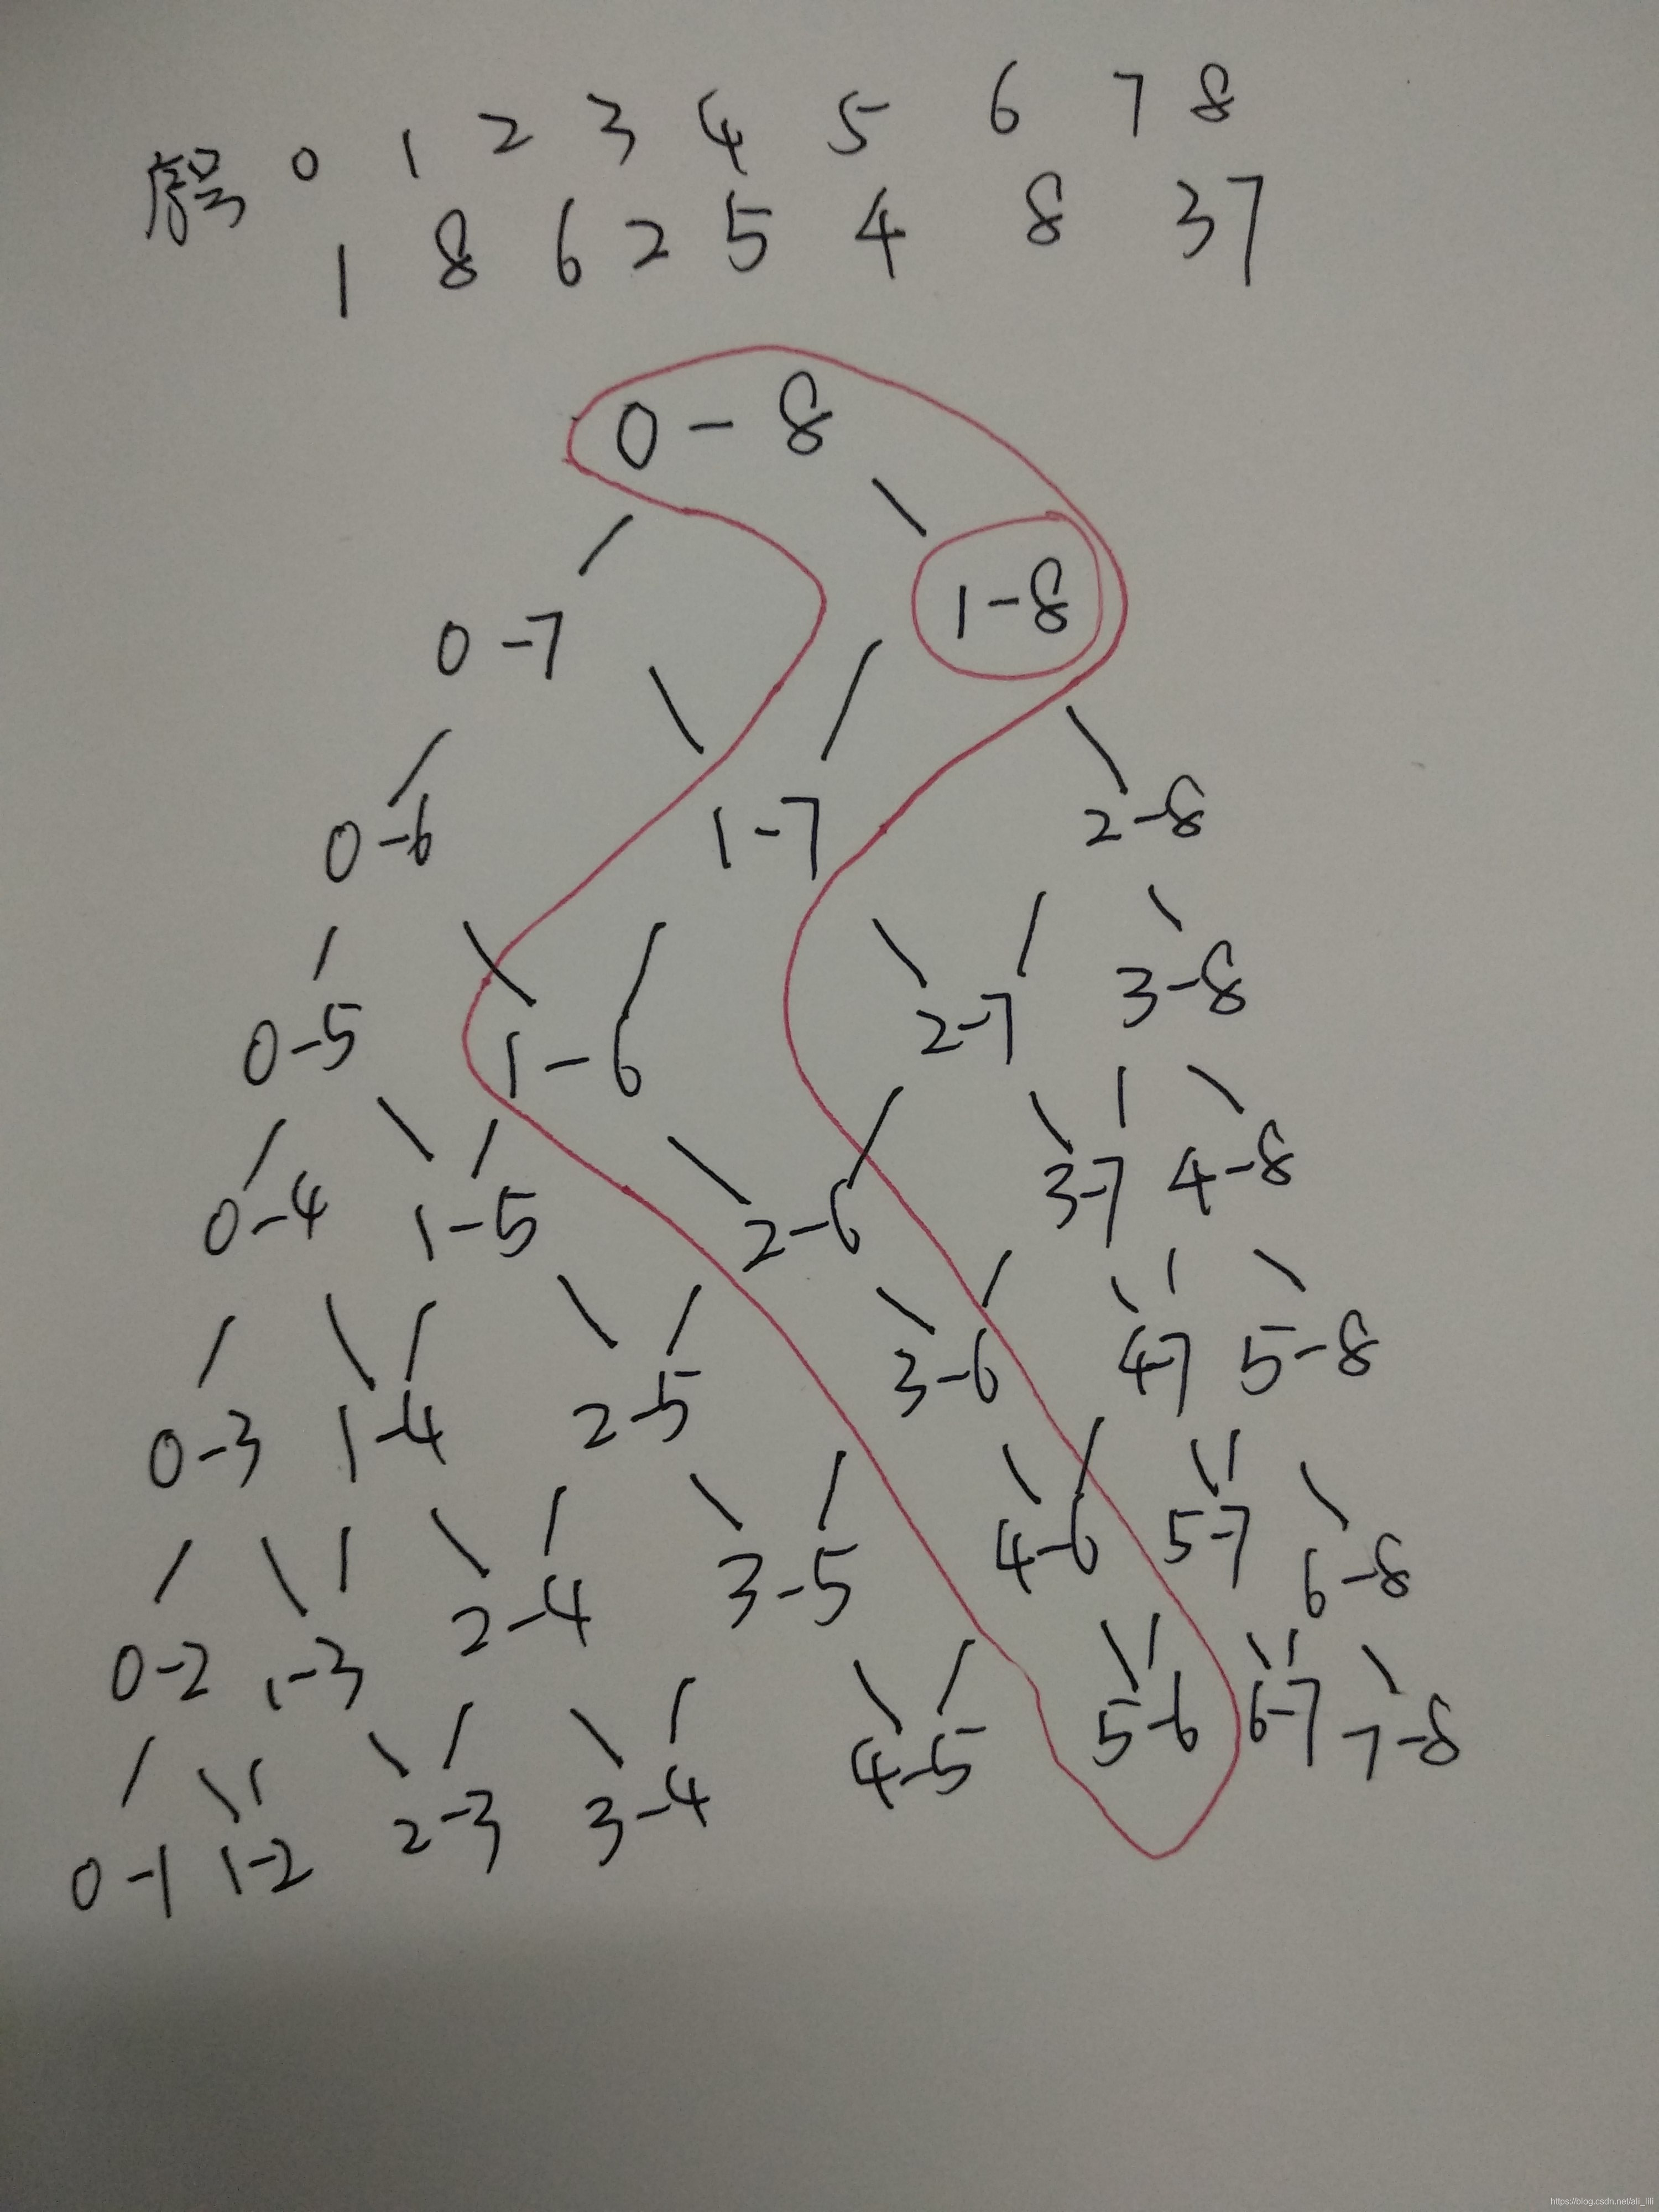 序号 0 1 2 3 4 5 6 7 8
1 8 6 2 5 4 8 3 7
0-8
0-7 1-8
0-6 1-7 2-8
0-5 1-6 2-7 3-8
0-4 1-5 2-6 3-7 4-8
0-3 1-4 2-5 3-6 4-7 5-8
0-2 1-3 2-4 3-5 4-6 5-7 6-8
0-1 1-2 2-3 3-4 4-5 5-6 6-7 7-8
https://blog.csdn.net/ali_lili